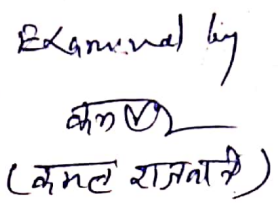 Examined by
(कमल राजवानी)